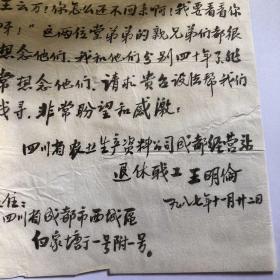 王云万！你怎么还不回来啊！我要看看你
呀！”这两位堂弟弟的亲兄弟们都很
想念他们，我和他们分别四十年了能
常想念他们，请求贵台设法帮我们
找寻，非常盼望和感激！
四川省农业生产资料公司成都经营站
退休职工 王明倫
住：
四川省成都市西城区
白家塘丁一号附一号。
一九八七年十一月廿二日